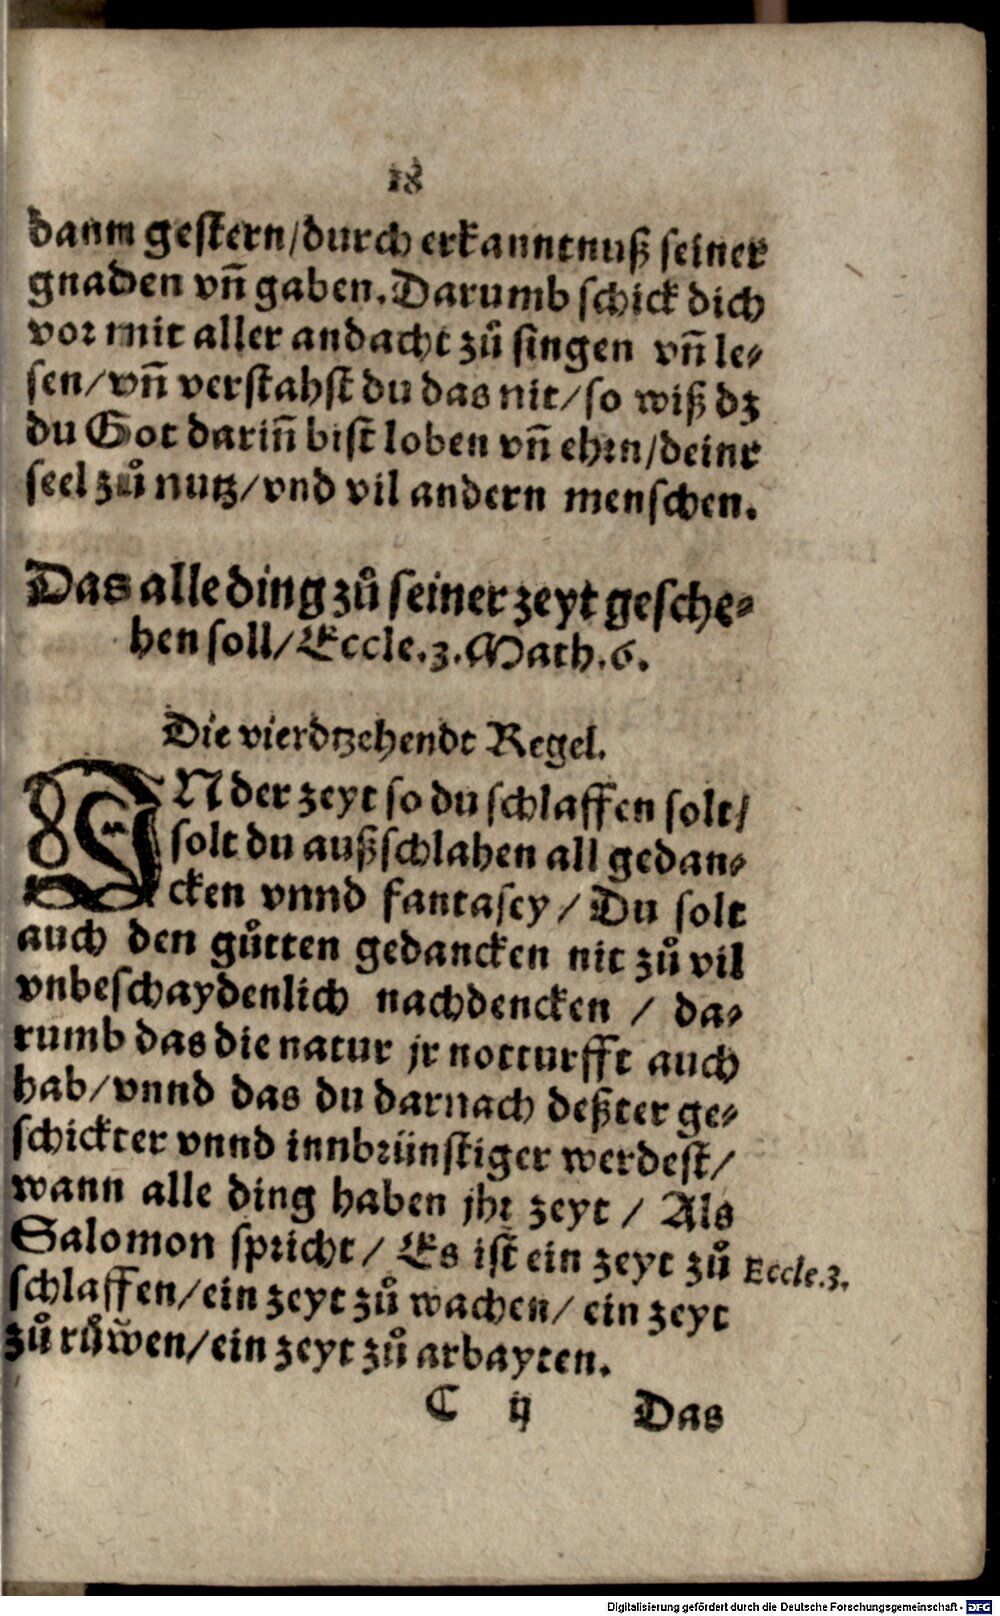 18
dann gestern/durch erkanntnuß seiner
gnaden vñ gaben. Darumb schick dich
vor mit aller andacht zů singen vñ le-
sen/vñ verstahst du das nit/so wiß dz
du Got dariñ bist loben vñ ehrn/deinr
seel zů nutz/vnd vil andern menschen.
Das alle ding zů seiner zeyt gesche-
hen soll/Eccle.3.Math.6.
Die vierdtzehendt Regel.
IN der zeyt so du schlaffen solt/
solt du außschlahen all gedan-
cken vnnd fantasey / Du solt
auch den gůtten gedancken nit zů vil
vnbeschaydenlich nachdencken / da-
rumb das die natur jr notturfft auch
hab/vnnd das du darnach deßter ge-
schickter vnnd innbrünstiger werdest/
wann alle ding haben jhr zeyt / Als
Salomon spricht / Es ist ein zeyt zů
Eccle.3.
schlaffen/ein zeyt zů wachen/ ein zeyt
zů růwen/ein zeyt zů arbayten.
C ij Das
Digitalisierung gefördert durch die Deutsche Forschungsgemeinschaft - DFG